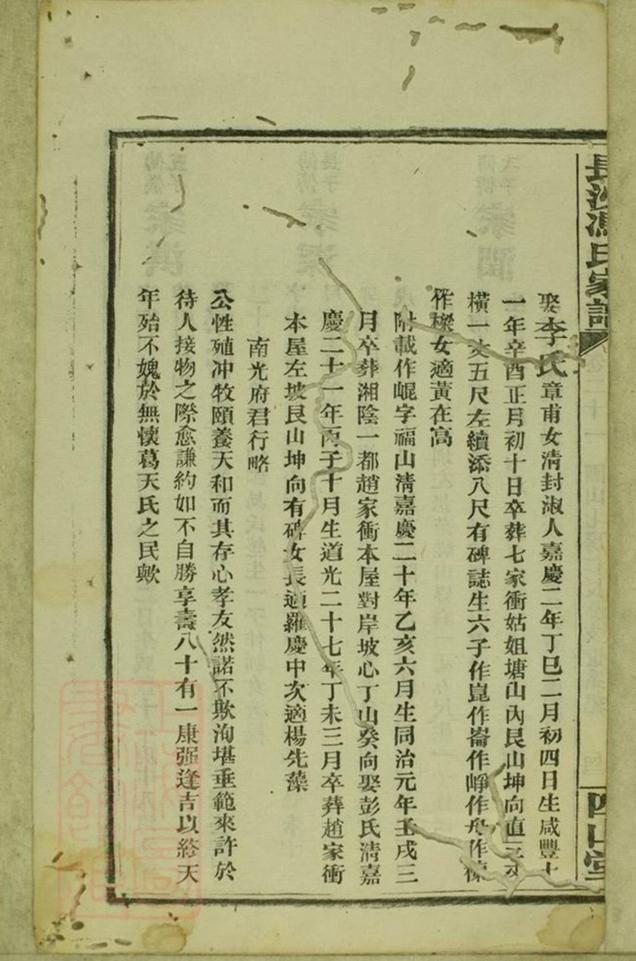 長沙馮氏家譜
四山堂
娶李氏章甫女清封淑人嘉慶二年丁巳二月初四日生咸豐十
一年辛酉正月初十日卒葬七家衝姑姐塘山內艮山坤向直三丈
橫一丈五尺左續添八尺有碑誌生六子作崑作崙作崢作舟作棟
作樑女適黃在高
附載作崐字福山清嘉慶二十年乙亥六月生同治元年壬戌三
月卒葬湘陰一都趙家衝本屋對岸坡心丁山癸向娶彭氏清嘉
慶二十一年丙子十月生道光二十七年丁未三月卒葬趙家衝
本屋左坡艮山坤向有碑女長適羅慶中次適楊先藻
南光府君行略
公性殖冲牧頤養天和而其存心孝友然諾不欺洵堪垂範來許於
待人接物之際愈謙約如不自勝享壽八十有一康强逢吉以終天
年殆不媿於無懷葛天氏之民歟